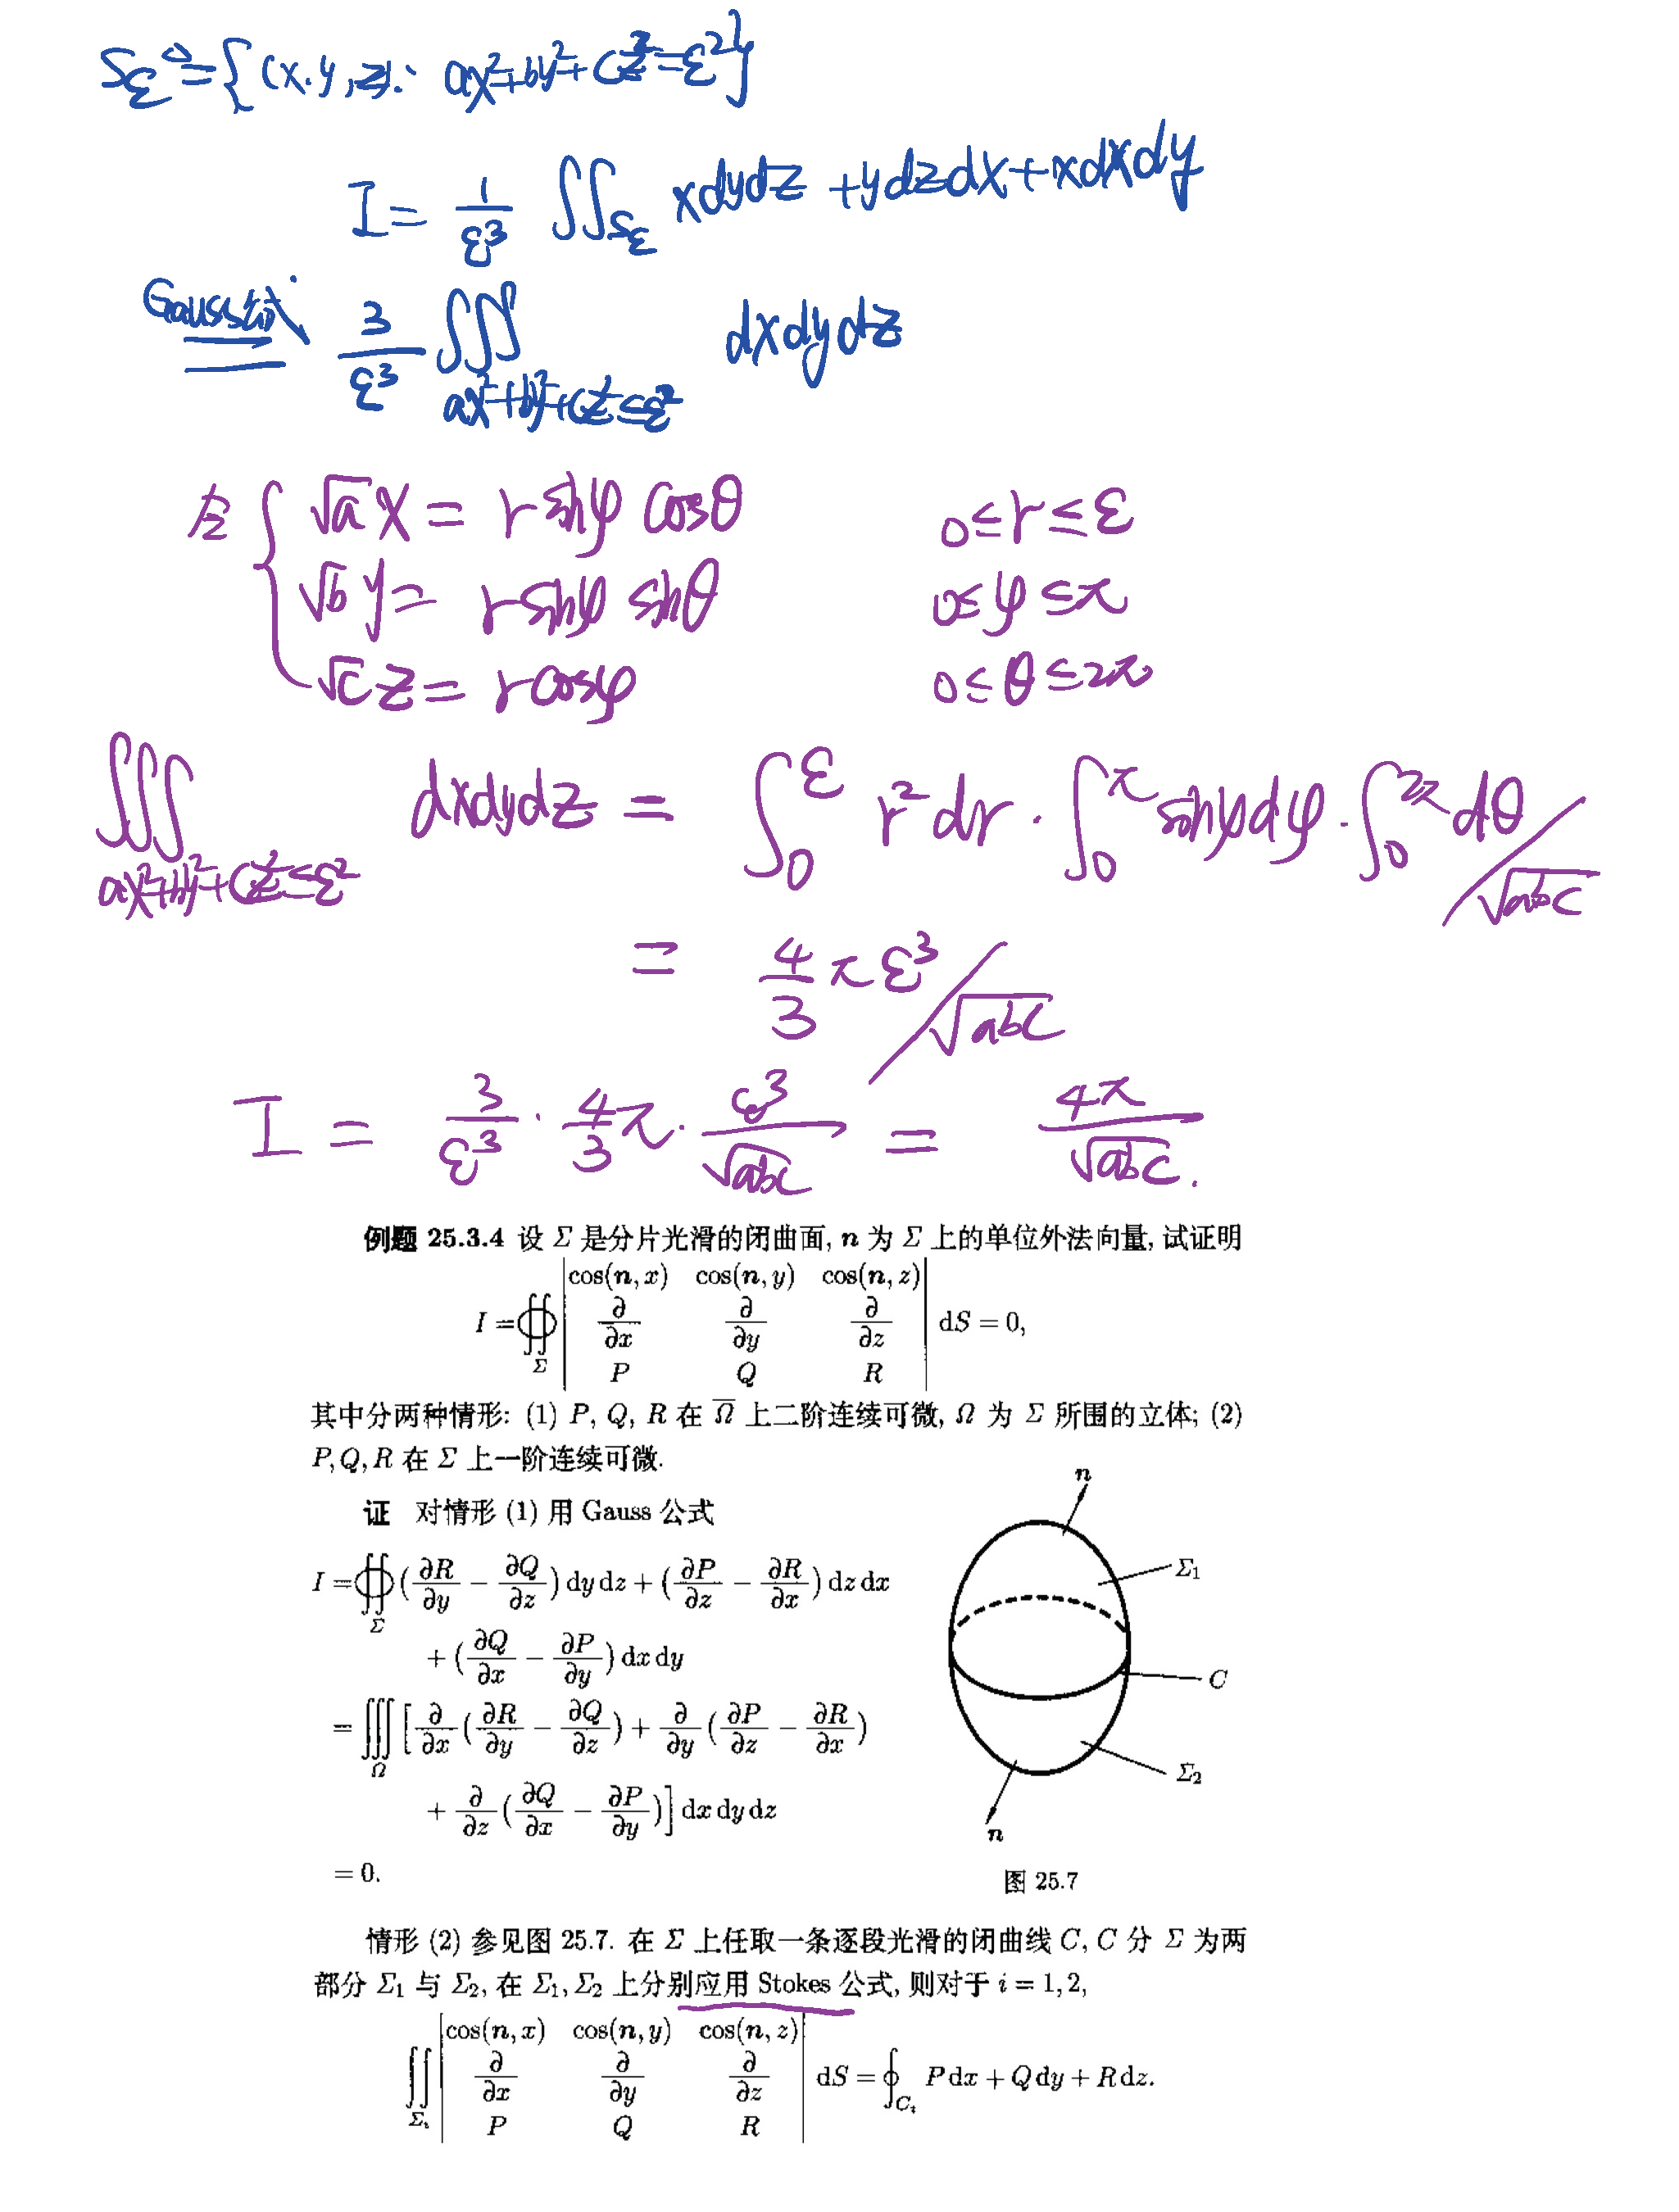 Sε = {(x.y,z): ax²+by²+cz²=ε²}
I = 1/ε³ ∬_{Sε} xdydz + ydzdx + xdxdy
Gauss公式 = 3/ε³ ∭_{ax²+by²+cz²≤ε²} dxdydz
令 { √a x = r sinφ cosθ 0≤r≤ε
√b y = r sinφ sinθ 0≤φ≤π
√c z = r cosφ 0≤θ≤2π
∭_{ax²+by²+cz²≤ε²} dxdydz = ∫₀^ε r²dr · ∫₀^π sinφdφ · ∫₀^{2π} dθ / √abc
= 4/3 π ε³ / √abc
I = 3/ε³ · 4/3 π · ε³/√abc = 4π/√abc .
例题 25.3.4 设 Σ 是分片光滑的闭曲面, n 为 Σ 上的单位外法向量, 试证明
I = ∯_Σ | cos(n, x) cos(n, y) cos(n, z) |
| ∂/∂x ∂/∂y ∂/∂z | dS = 0,
| P Q R |
其中分两种情形: (1) P, Q, R 在 Ω̅ 上二阶连续可微, Ω 为 Σ 所围的立体; (2)
P, Q, R 在 Σ 上一阶连续可微.
证 对情形 (1) 用 Gauss 公式
I = ∯_Σ (∂R/∂y − ∂Q/∂z) dy dz + (∂P/∂z − ∂R/∂x) dz dx
+ (∂Q/∂x − ∂P/∂y) dx dy
= ∭_Ω [∂/∂x (∂R/∂y − ∂Q/∂z) + ∂/∂y (∂P/∂z − ∂R/∂x)
+ ∂/∂z (∂Q/∂x − ∂P/∂y)] dx dy dz
= 0.
n
Σ₁
C
Σ₂
n
图 25.7
情形 (2) 参见图 25.7. 在 Σ 上任取一条逐段光滑的闭曲线 C, C 分 Σ 为两
部分 Σ₁ 与 Σ₂, 在 Σ₁, Σ₂ 上分别应用 Stokes 公式, 则对于 i = 1, 2,
∬_{Σᵢ} | cos(n, x) cos(n, y) cos(n, z) |
| ∂/∂x ∂/∂y ∂/∂z | dS = ∮_{Cᵢ} P dx + Q dy + R dz.
| P Q R |